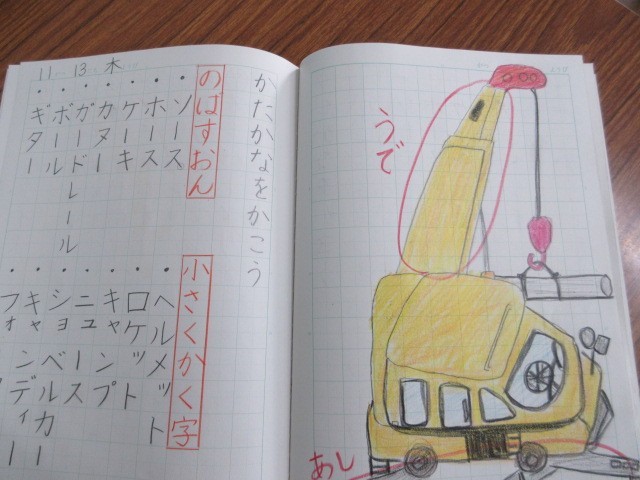 11 13 木
かたかなをかこう
のばすおん
・ソース
・ホース
・ケーキ
・カヌー
・ガードレール
・ボール
・ギター
小さくかく字
・ヘルメット
・ロケット
・キャンプ
・ニュース
・ショベルカー
・キャンディー
・フォ
うで
あし